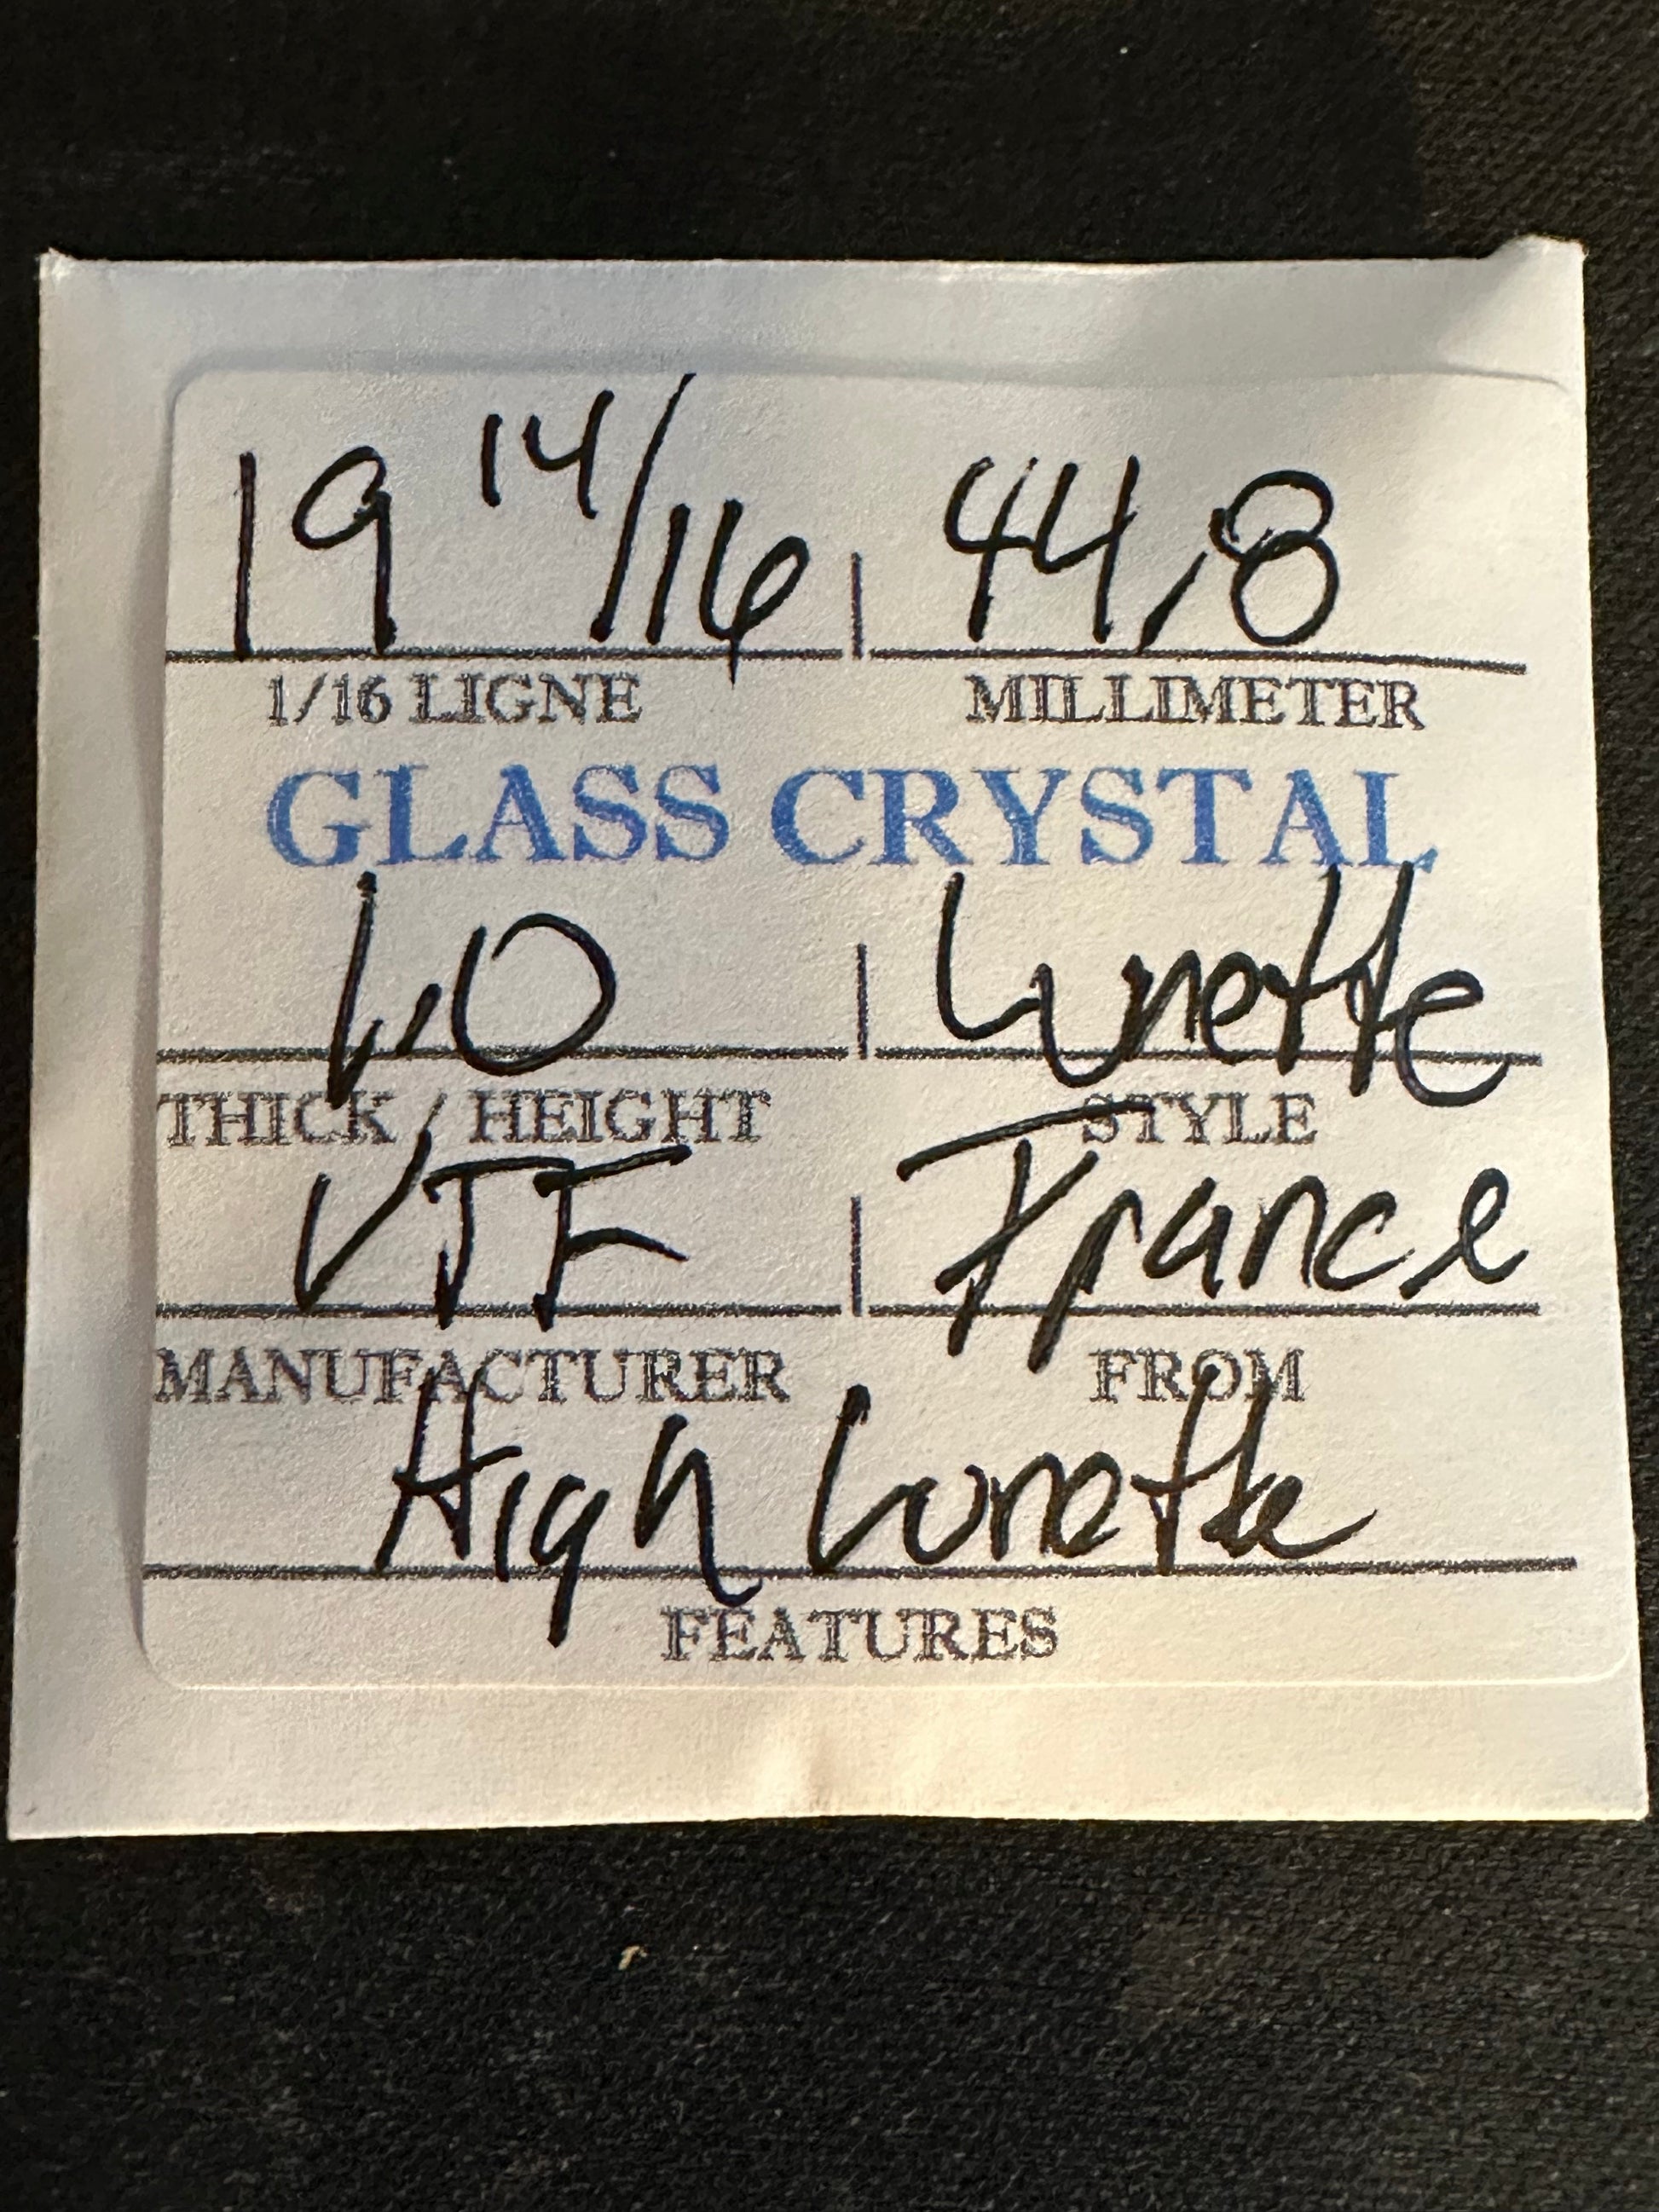 19 14/16 44.8
1/16 LIGNE MILLIMETER
GLASS CRYSTAL
Lunette
THICK / HEIGHT STYLE
VTF France
MANUFACTURER FROM
High Lunette
FEATURES